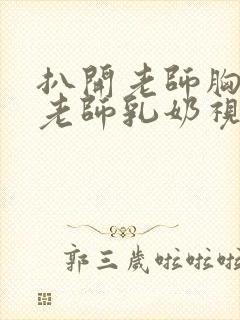 扒開老師胸
老師乳奶視
郭三歲啦啦啦